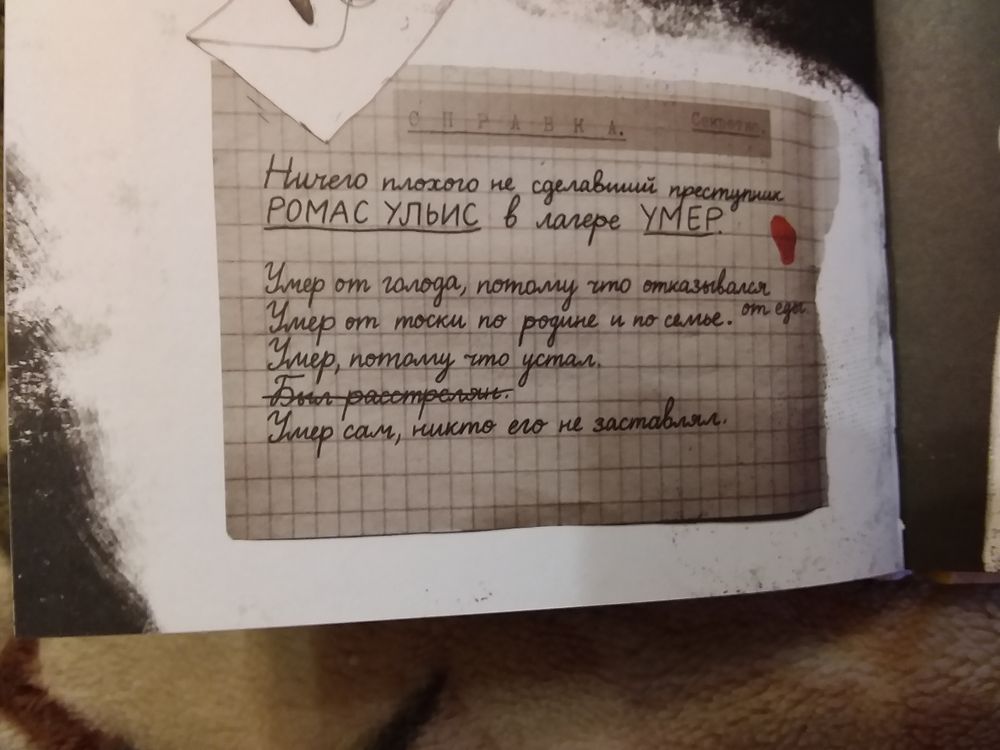 СПРАВКА. Секретно.
Ничего плохого не сделавший преступник
РОМАС УЛЬИС в лагере УМЕР.
Умер от голода, потому что отказывался
от еды.
Умер от тоски по родине и по семье.
Умер, потому что устал.
Был расстрелян.
Умер сам, никто его не заставлял.